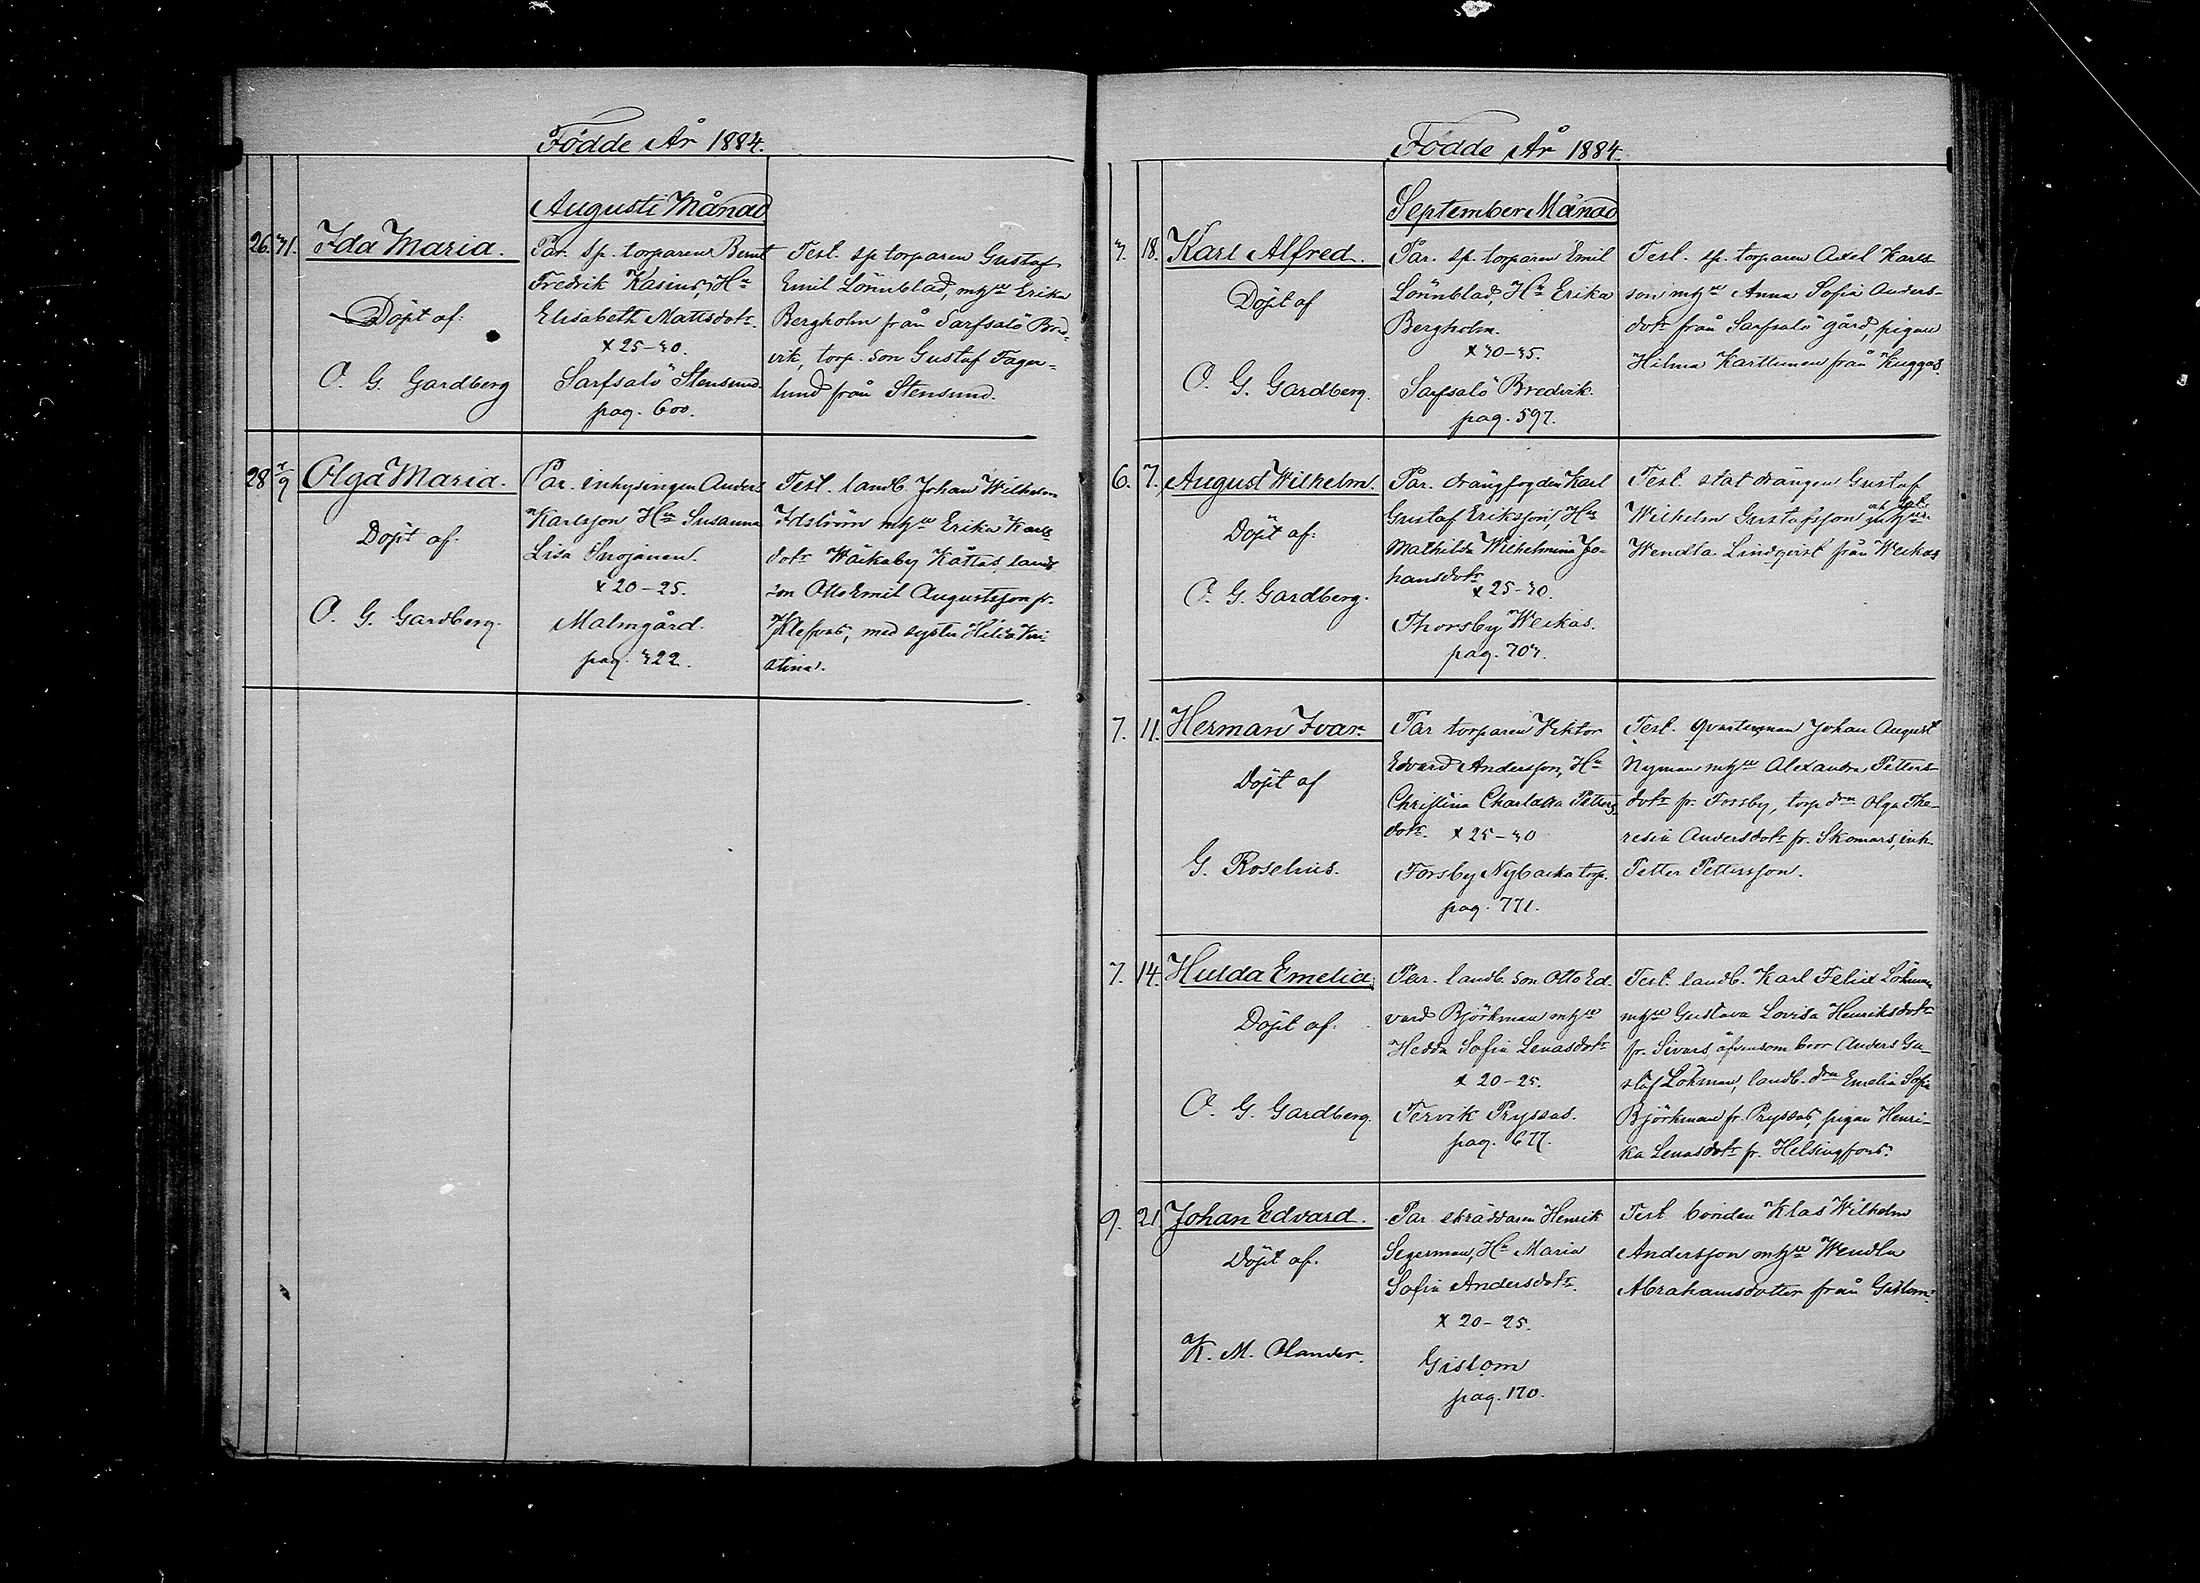 Födde År 1884.
Augusti Månad
26. 31. Ida Maria.
Döpt af.
O. G. Gardberg
Par. sp. torparen Bernt
Fredrik Kasius, Hu
Elisabeth Mattsdotr.
x 25-30.
Sarfsalö Stensund.
pag. 600.
Test. sp torparen Gustaf
Emil Lönnblad, mhu Erika
Bergholm från Sarfsalö Bred-
vik, torp. son Gustaf Fager-
lund från Stensund.
28 7/9 Olga Maria.
Döpt af.
O. G. Gardberg.
Par. inhysingen Anders
Karlsson Hu Susanna
Lisa
x 20-25.
Malmgård.
pag. 322.
Test. landb. Johan Wilhelm
Idström mhu Erika Karls
dotr Wåtkaby Kåttas, lands
son Otto Emil Augustsson fr.
med syster Hilda Kri
stina.
Födde År 1884.
September Månad
3. 18. Karl Alfred.
Döpt af
O. G. Gardberg.
Par. sp. torparen Emil
Lönnblad, Hu Erika
Bergholm.
x 30-35.
Sarfsalö Bredvik.
pag. 597.
Test. sp. torparen Axel Karls
son mhu Anna Sofia Anders-
dotr från Sarfsalö gård, pigan
Hilma från Kuggas.
6. 7. August Wilhelm.
Döpt af.
O. G. Gardberg.
Par. drängfogden Karl
Gustaf Eriksson, Hu
Mathilda Wilhelmina Jo-
hansdotr
x 25-30.
Thorsby Weckas.
pag. 703.
Test statdrängen Gustaf
Wilhelm Gustafsson
Wendla Lindqvist från Weckas
7. 11. Herman Ivar.
Döpt af
G. Roselius.
Par torparen Viktor
Edvard Andersson, Hu
Christina Charlotta Petters
dotr. x 25-30
Forsby Nybacka torp.
pag. 771.
Test. qvarterman Johan August
Nyman mhu Alexandra Petters-
dotr fr. Forsby, torp. drn Olga The-
resia Andersdotr fr. Skomars, inh.
Petter Pettersson.
7. 14. Hulda Emelia.
Döpt af.
O. G. Gardberg.
Par. landb. son Otto Ed-
vard Björkman mhu
Hedda Sofia Lenasdotr
x 20-25.
Tervik Pryssas.
pag. 677.
Test. landb. Karl Felix Löhman
mhu Gustava Lovisa Henriksdotr
fr. Sivars, äfvensom bror Anders Gu-
staf Löhman, landb. drn Emelia Sofia
Björkman fr. Pryssas, pigan Henri-
ka Lenasdotr fr. Helsingfors.
9. 21. Johan Edvard.
Döpt af.
K. M. Olander.
Par. skräddaren Henrik
Segerman, Hu Maria
Sofia Andersdotr.
x 20-25.
Gislom
pag. 170.
Test. bonden Klas Wilhelm
Andersson mhu Wendla
Abrahamsdotter från Gislom.